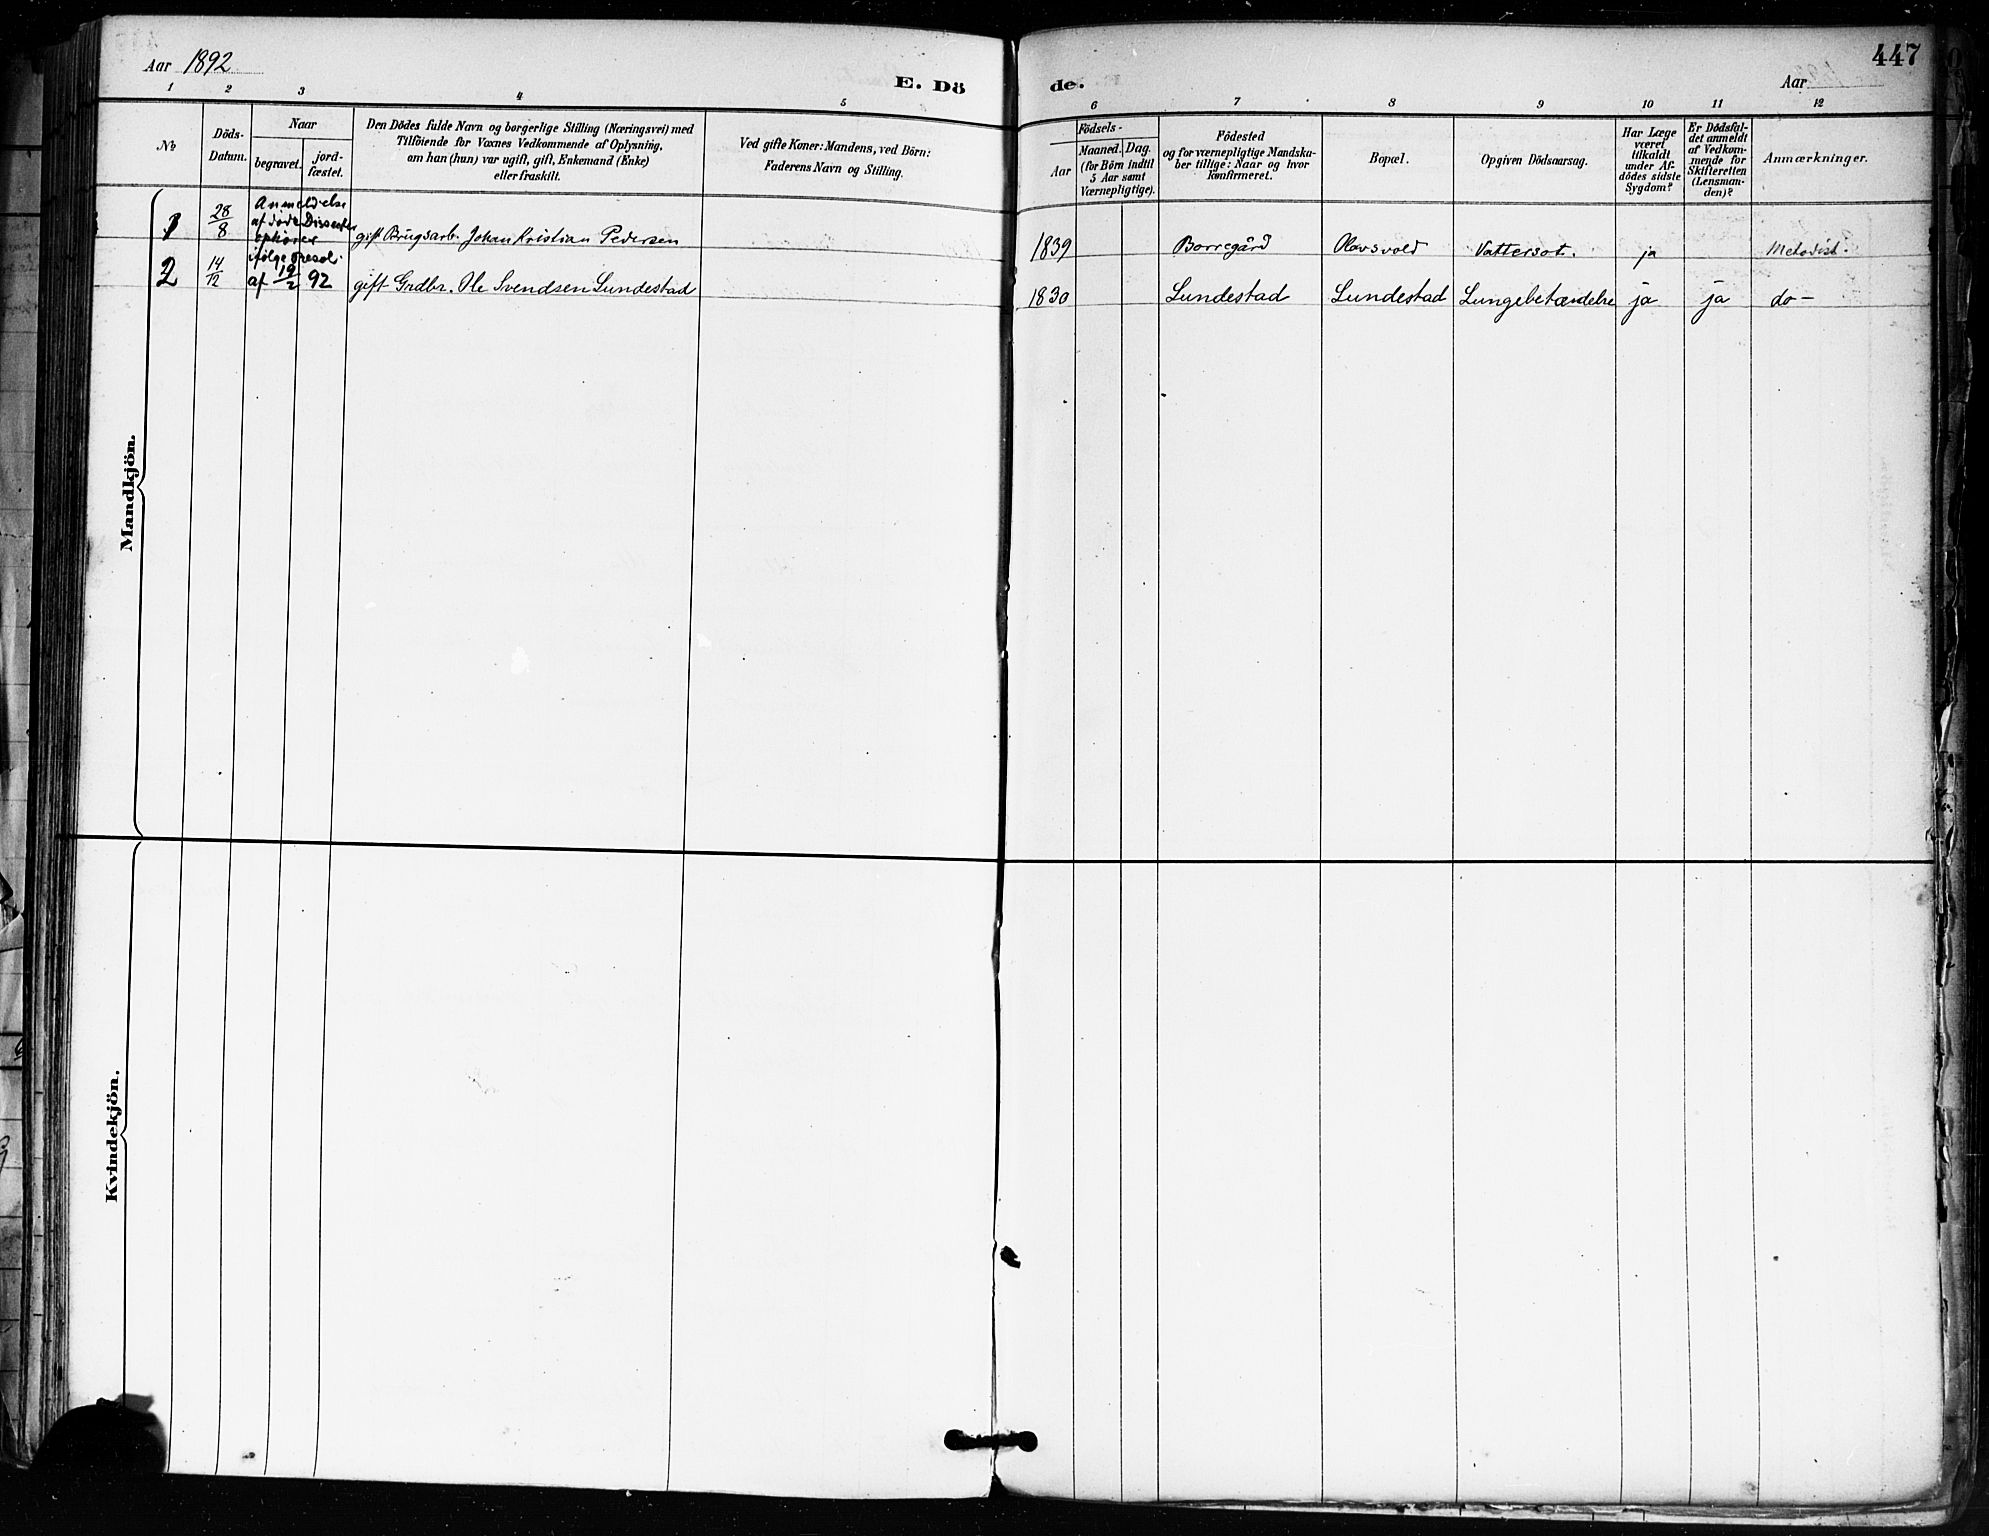 Aar 1892
E. Dö
1 2 3 4 5
№
Döds-
Datum.
Naar
begravet.
jord-
fæstet.
Den Dödes fulde Navn og borgerlige Stilling (Næringsvei) med
Tilföiende for Voxnes Vedkommende af Oplysning,
om han (hun) var ugift, gift, Enkemand (Enke)
eller fraskilt.
Ved gifte Koner: Mandens, ved Börn:
Faderens Navn og Stilling.
Mandkjön.
Anmeldelse
af døde Dissenter
ophører
ifølge resol.
af 19/2 92
1 28/8 gift Brugsarb. Johan Kristian Pedersen
2 14/12 gift Grdbr. Ole Svendsen Lundestad
Kvindekjön.
447
de.
Aar
6 7 8 9 10 11 12
Födsels-
Aar
Maaned. Dag.
(for Börn indtil
5 Aar samt
Værnepligtige).
Födested
og for værnepligtige Mandska-
ber tillige: Naar og hvor
Konfirmeret.
Bopæl.
Opgiven Dödsaarsag.
Har Læge
været
tilkaldt
under Af-
dödes sidste
Sygdom?
Er Dödsfal-
det anmeldt
af Vedkom-
mende for
Skifteretten
(Lensman-
den)?
Anmærkninger.
1839 Borregård Olavsvold Vattersot. ja Metodist.
1830 Lundestad Lundestad Lungebetændelse ja ja do-